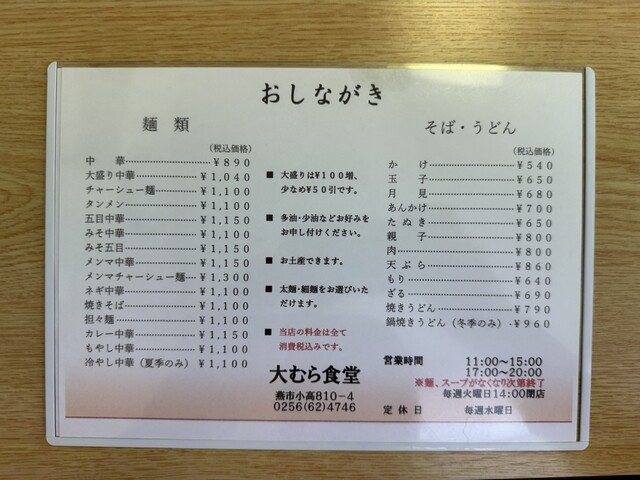 おしながき
麺類
(税込価格)
中華 ¥890
大盛り中華 ¥1,040
チャーシュー麺 ¥1,100
タンメン ¥1,100
五目中華 ¥1,150
みそ中華 ¥1,100
みそ五目 ¥1,150
メンマ中華 ¥1,150
メンマチャーシュー麺 ¥1,300
ネギ中華 ¥1,100
焼きそば ¥1,100
担々麺 ¥1,100
カレー中華 ¥1,150
もやし中華 ¥1,100
冷やし中華（夏季のみ） ¥1,100
■ 大盛りは¥100増、
少なめ¥50引です。
■ 多油・少油などお好みを
お申し付けください。
■ お土産できます。
■ 太麺・細麺をお選びいた
だけます。
■ 当店の料金は全て
消費税込みです。
大むら食堂
燕市小高810-4
0256(62)4746
そば・うどん
(税込価格)
かけ ¥540
玉子 ¥650
月見 ¥680
あんかけ ¥700
たぬき ¥650
親子 ¥800
肉 ¥800
天ぷら ¥860
もり ¥640
ざる ¥690
焼きうどん ¥790
鍋焼きうどん（冬季のみ） ¥960
営業時間 11:00～15:00
17:00～20:00
※麺、スープがなくなり次第終了
毎週火曜日14:00閉店
定休日 毎週水曜日